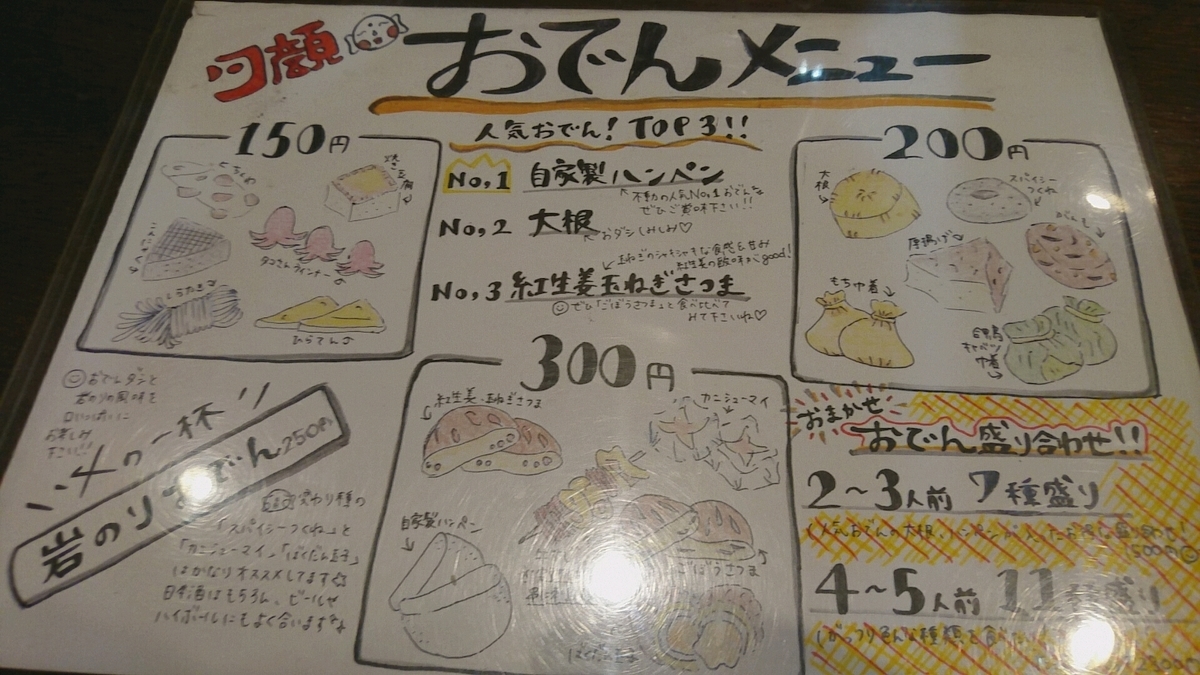 夕顔
おでんメニュー
人気おでん! TOP3!!
No,1 自家製ハンペン
不動の人気No,1おでんな
ぜひご賞味下さい!!
No,2 大根
おダシしみしみ♡
No,3 紅生姜玉ねぎさつま
玉ねぎのシャキシャキな食感と甘み
紅生姜の酸味がgood!
ぜひ「ごぼうさつま」と食べ比べて
みて下さいね♡
150円
ちくわ
焼き豆腐
こんにゃく
タコさんウインナー
しらたき
ひらてん
200円
大根
スパイシーつくね
厚揚げ
がんも
もち巾着
合鴨キャベツ巾着
300円
紅生姜・玉ねぎさつま
カニシューマイ
自家製ハンペン
ごぼうさつま
ばくだん玉子
おでんダシと
岩のりの風味を
口いっぱいに
お楽しみ
下さい!!
〆の一杯
岩のりおでん 250円
変わり種の
「スパイシーつくね」と
「カニシューマイ」「ばくだん玉子」
はかなりオススメしてます
日本酒はもちろん、ビールや
ハイボールにもよく合いますよ
おまかせ
おでん盛り合わせ!!
2〜3人前 7種盛り
1500円
4〜5人前 11種盛り